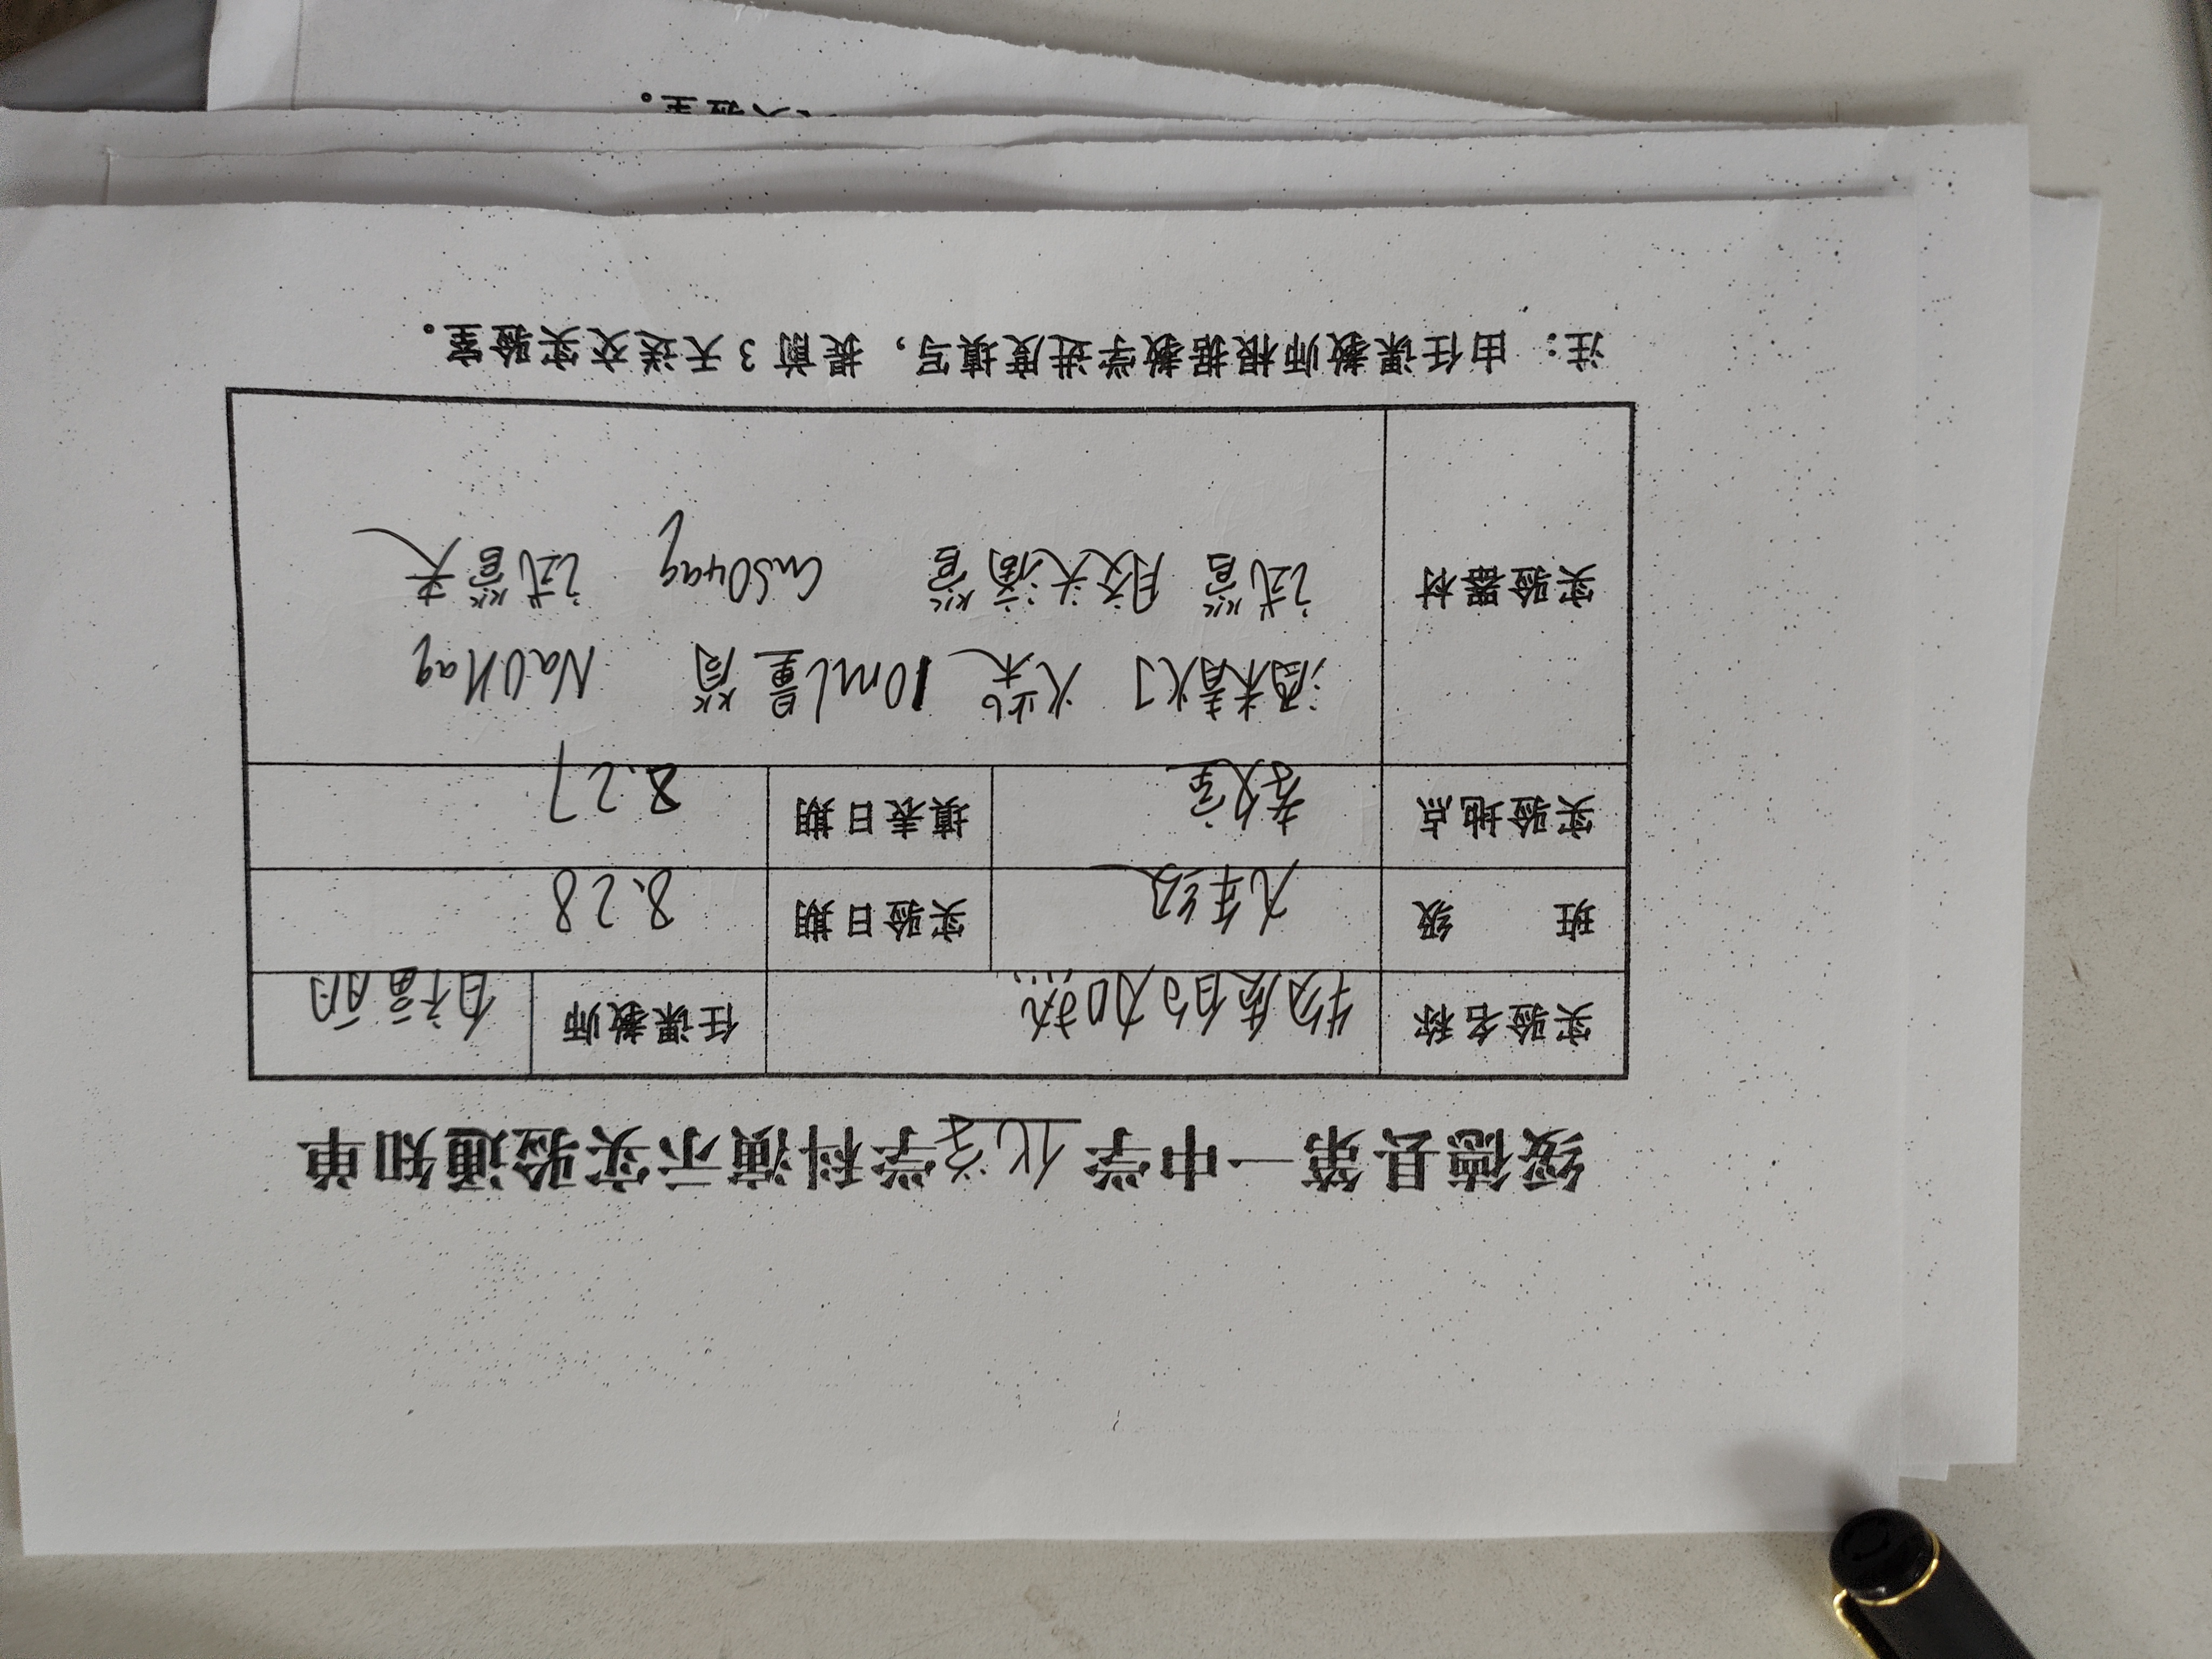 绥德县第一中学化学学科演示实验通知单
实验名称 物质的加热 任课教师
班 级 九年级 实验日期 8.28
实验地点 教室 填表日期 8.27
实验器材 酒精灯 火柴 10ml量筒 NaOHaq
试管 胶头滴管 CuSO4aq 试管夹
注：由任课教师根据教学进度填写，提前3天送交实验室。